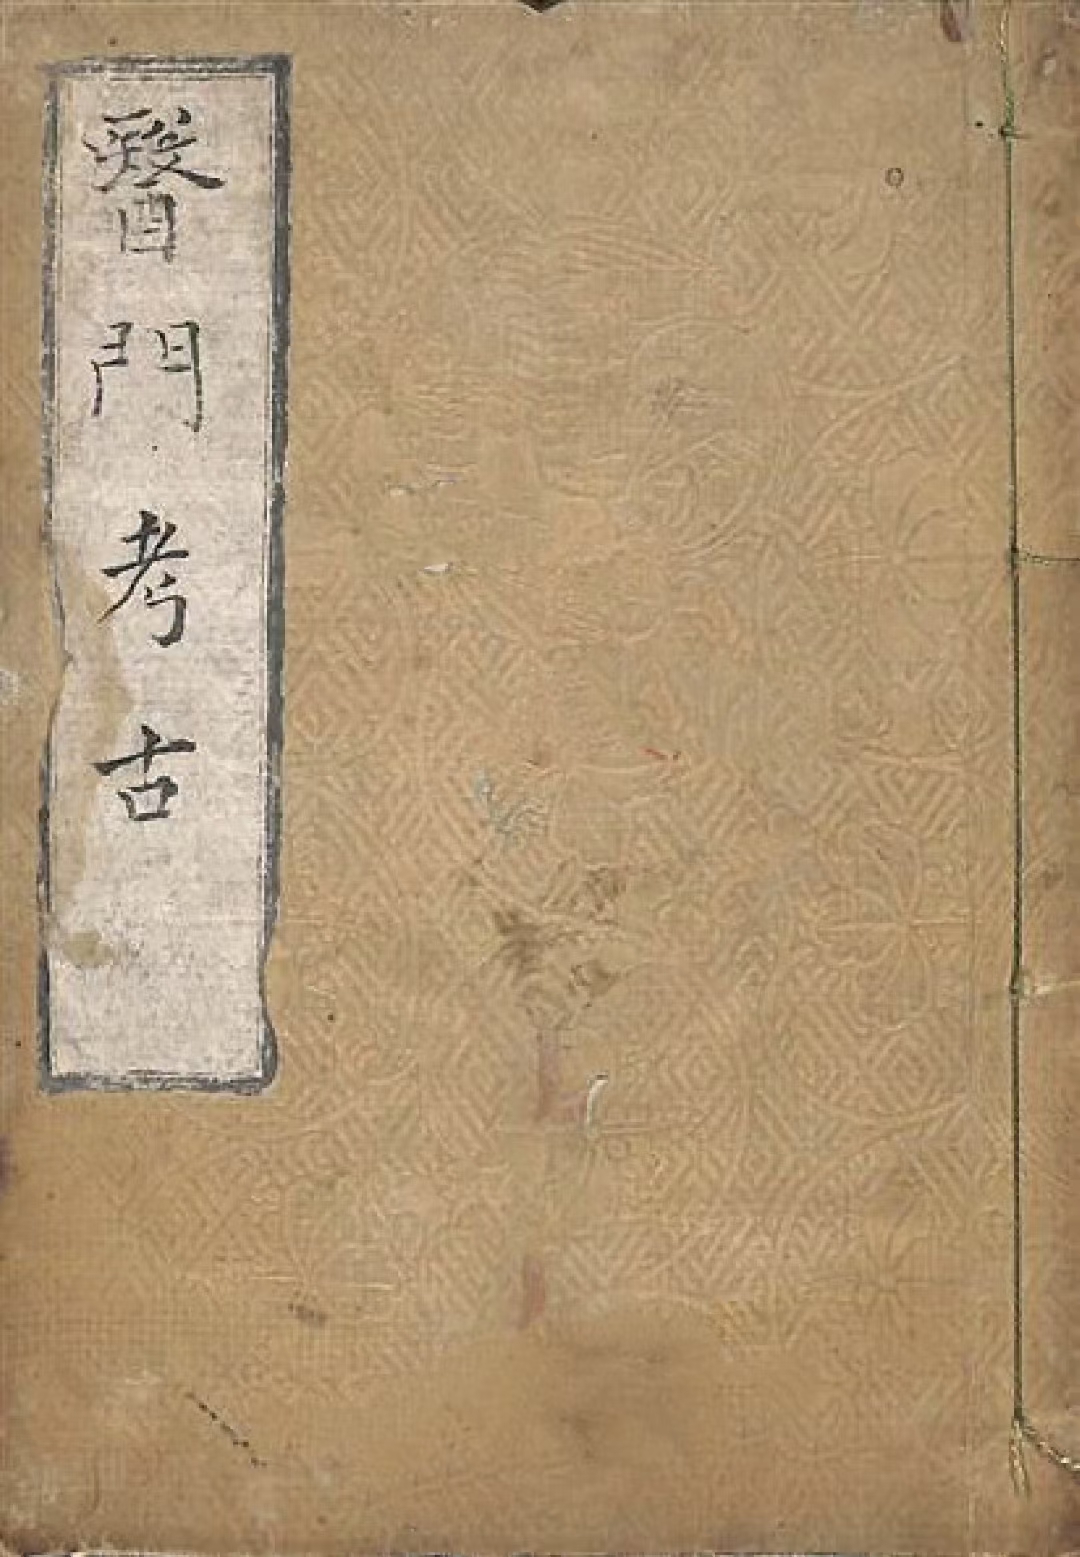 醫門考古